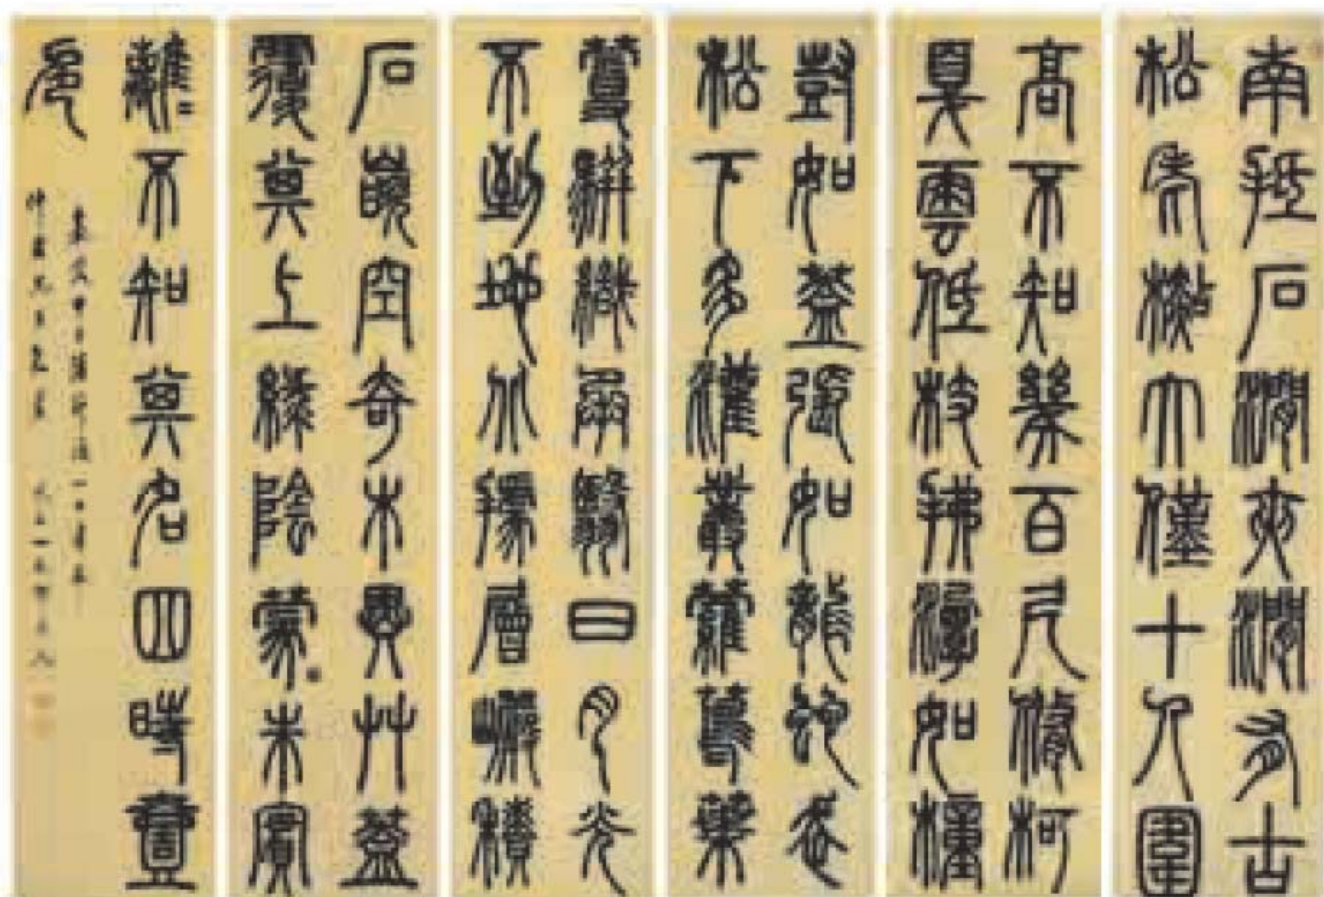 南抵石澗夾澗有古
松老檆大僅十人圍
高不知幾百尺脩柯
戛雲低枝拂潭如橦
尌如蓋張如龍蛇走
松下多灌叢蘿蔦葉
蔓駢織承翳日月光
不到地北據層巖積
石嵌空奇木異艸蓋
覆其上綠陰蒙〻朱實
離〻不知其名四時壹
色